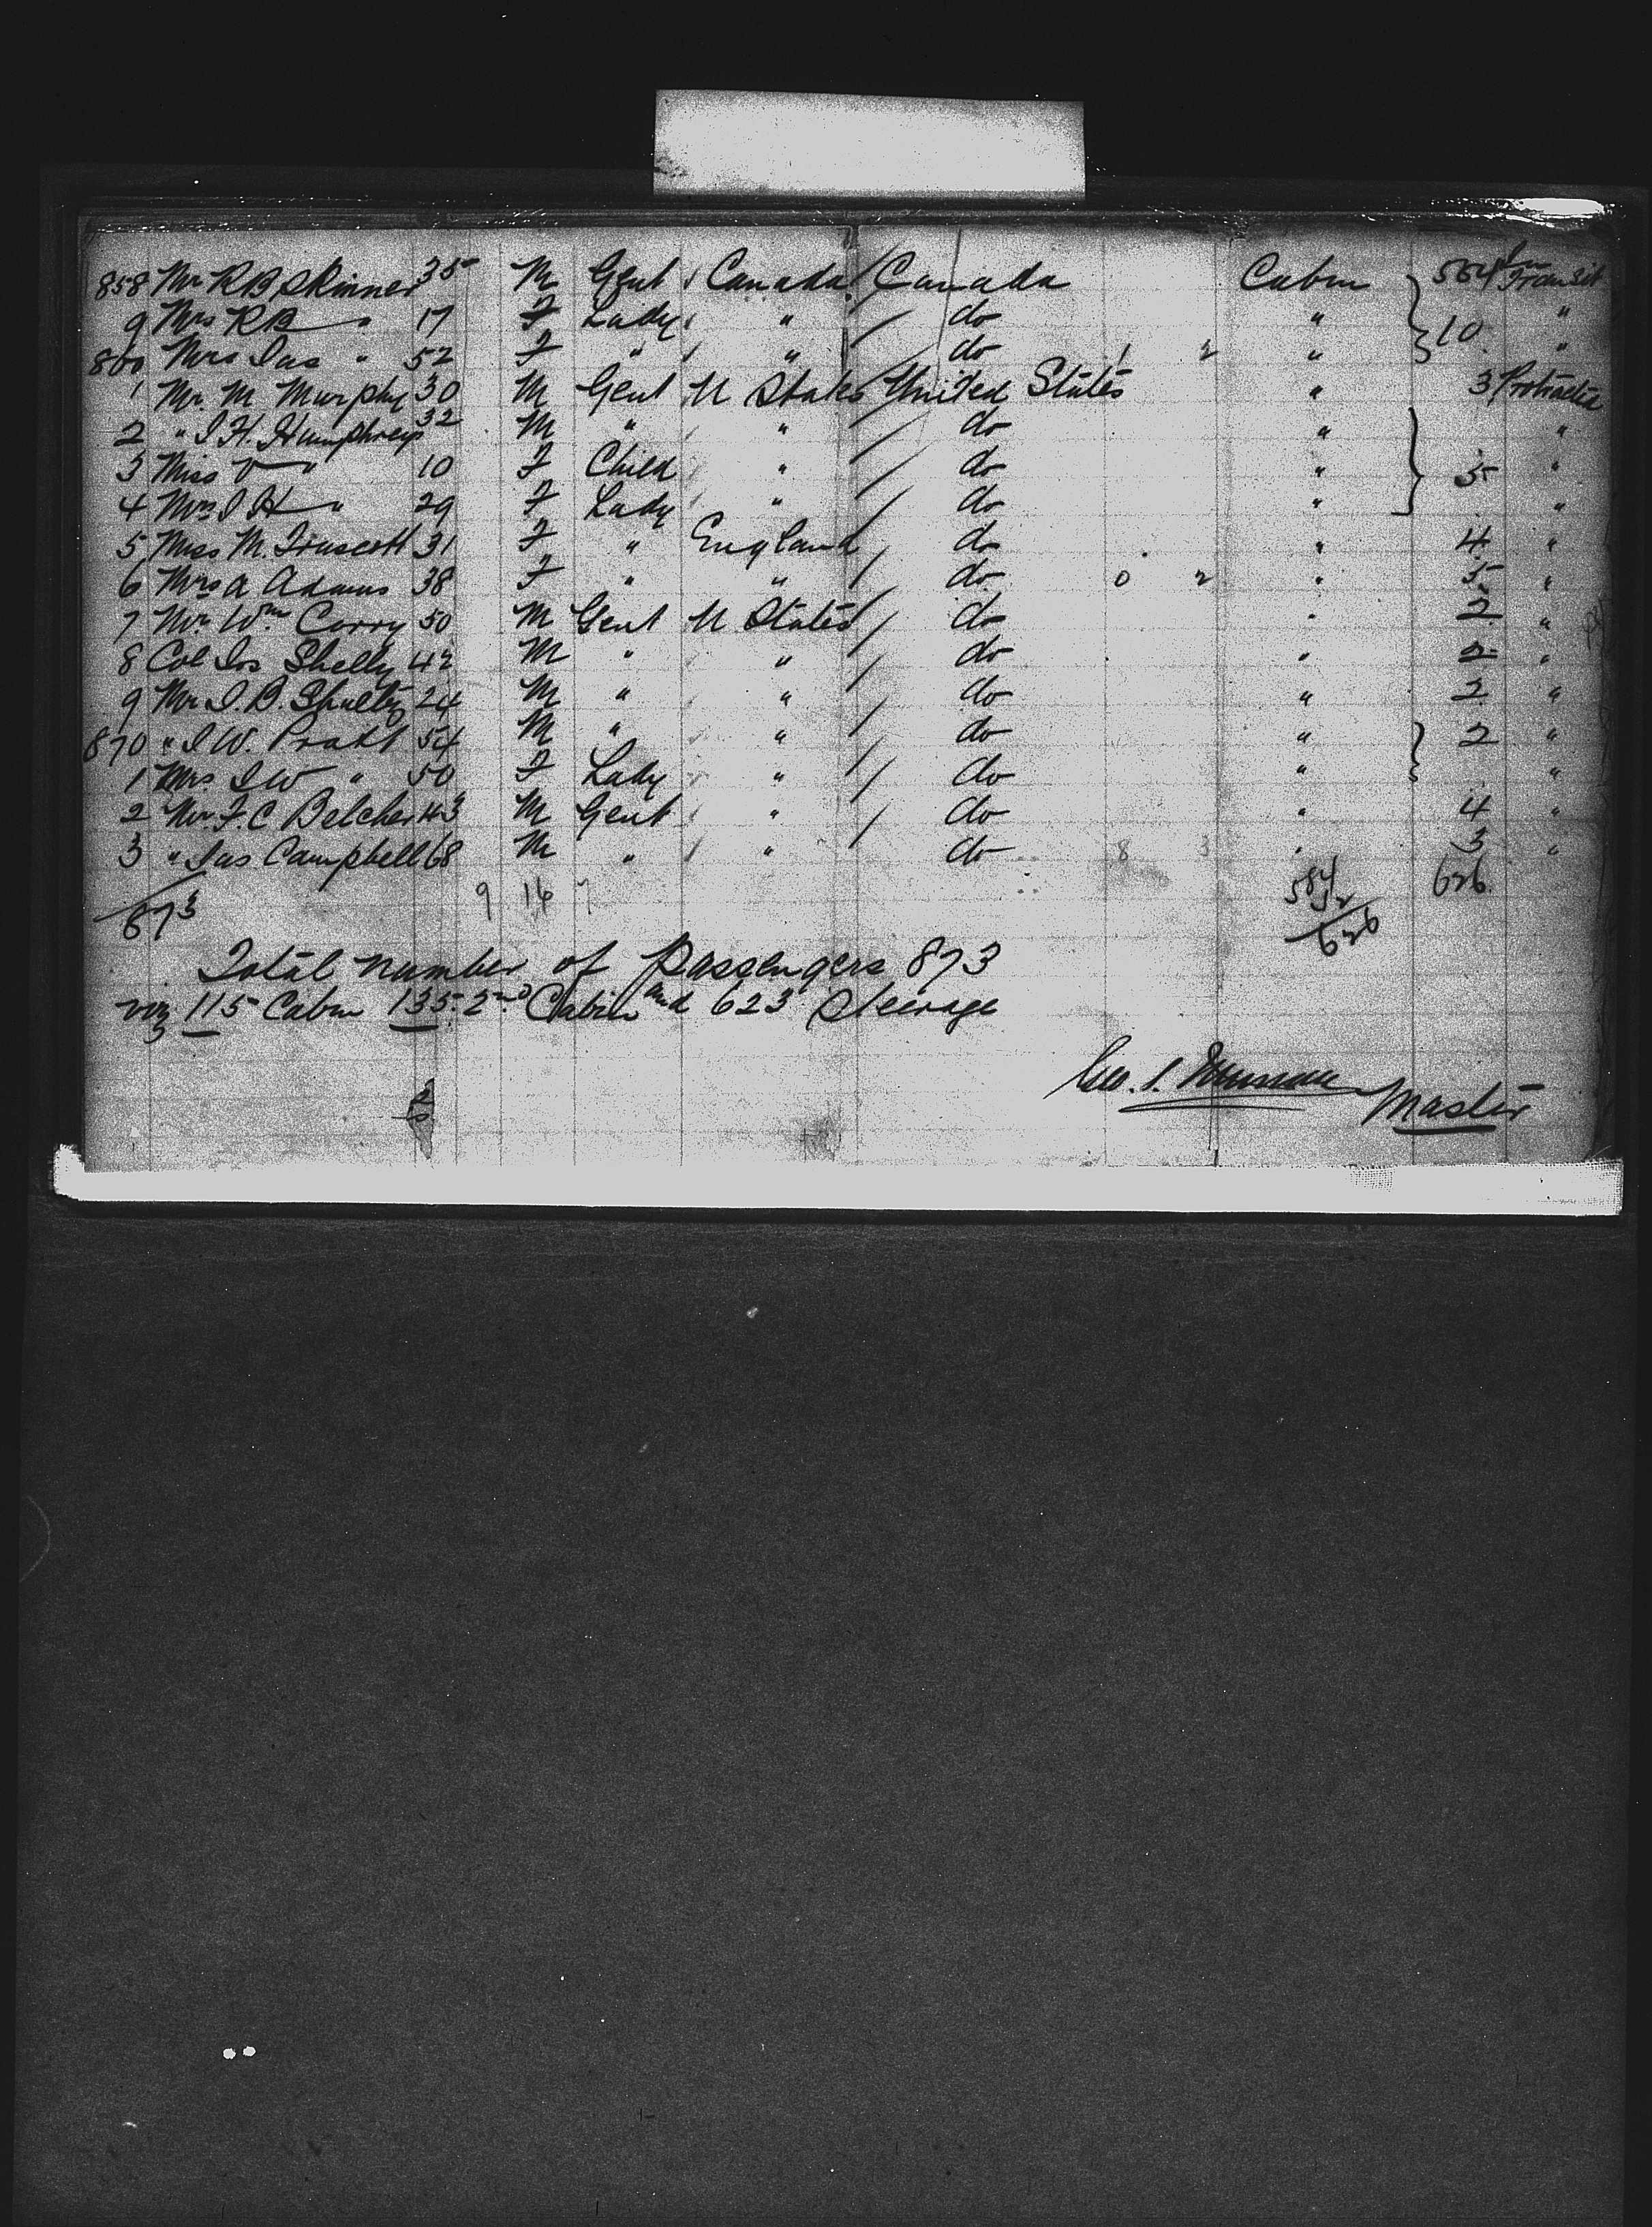 858 Mr R B Skinner 35 M Gent Canada / Canada Cabin } 584 In Transit
9 Mrs R B " 17 F Lady " / do " 10 "
860 Mrs Jas " 52 F " " / do 1 2 " "
1 Mr. M Murphy 30 M Gent U States / United States " 3 Protracted
2 " J H. Humphreys 32 M " " / do " } "
3 Miss V " 10 F Child " / do " 5 "
4 Mrs J H " 29 F Lady " / do " "
5 Miss M. Truscott 31 F " England / do " 4 "
6 Mrs A Adams 38 F " " / do 0 2 " 5 "
7 Mr. Wm Corry 50 M Gent U States / do " 2 "
8 Col Jos Shelly 42 M " " / do " 2 "
9 Mr J. B. Shultz 24 M " " / do " 2 "
870 " J W. Pratt 54 M " " / do " } 2 "
1 Mrs J W " 50 F Lady " / do " "
2 Mr. F. C Belcher 43 M Gent " / do " 4 "
3 " Jas Campbell 68 M " " do 8 3 " 3 "
873 9 16 7 584 626
626
Total number of Passengers 873
viz 115 Cabin 135 2nd Cabin and 623 Steerage
Master